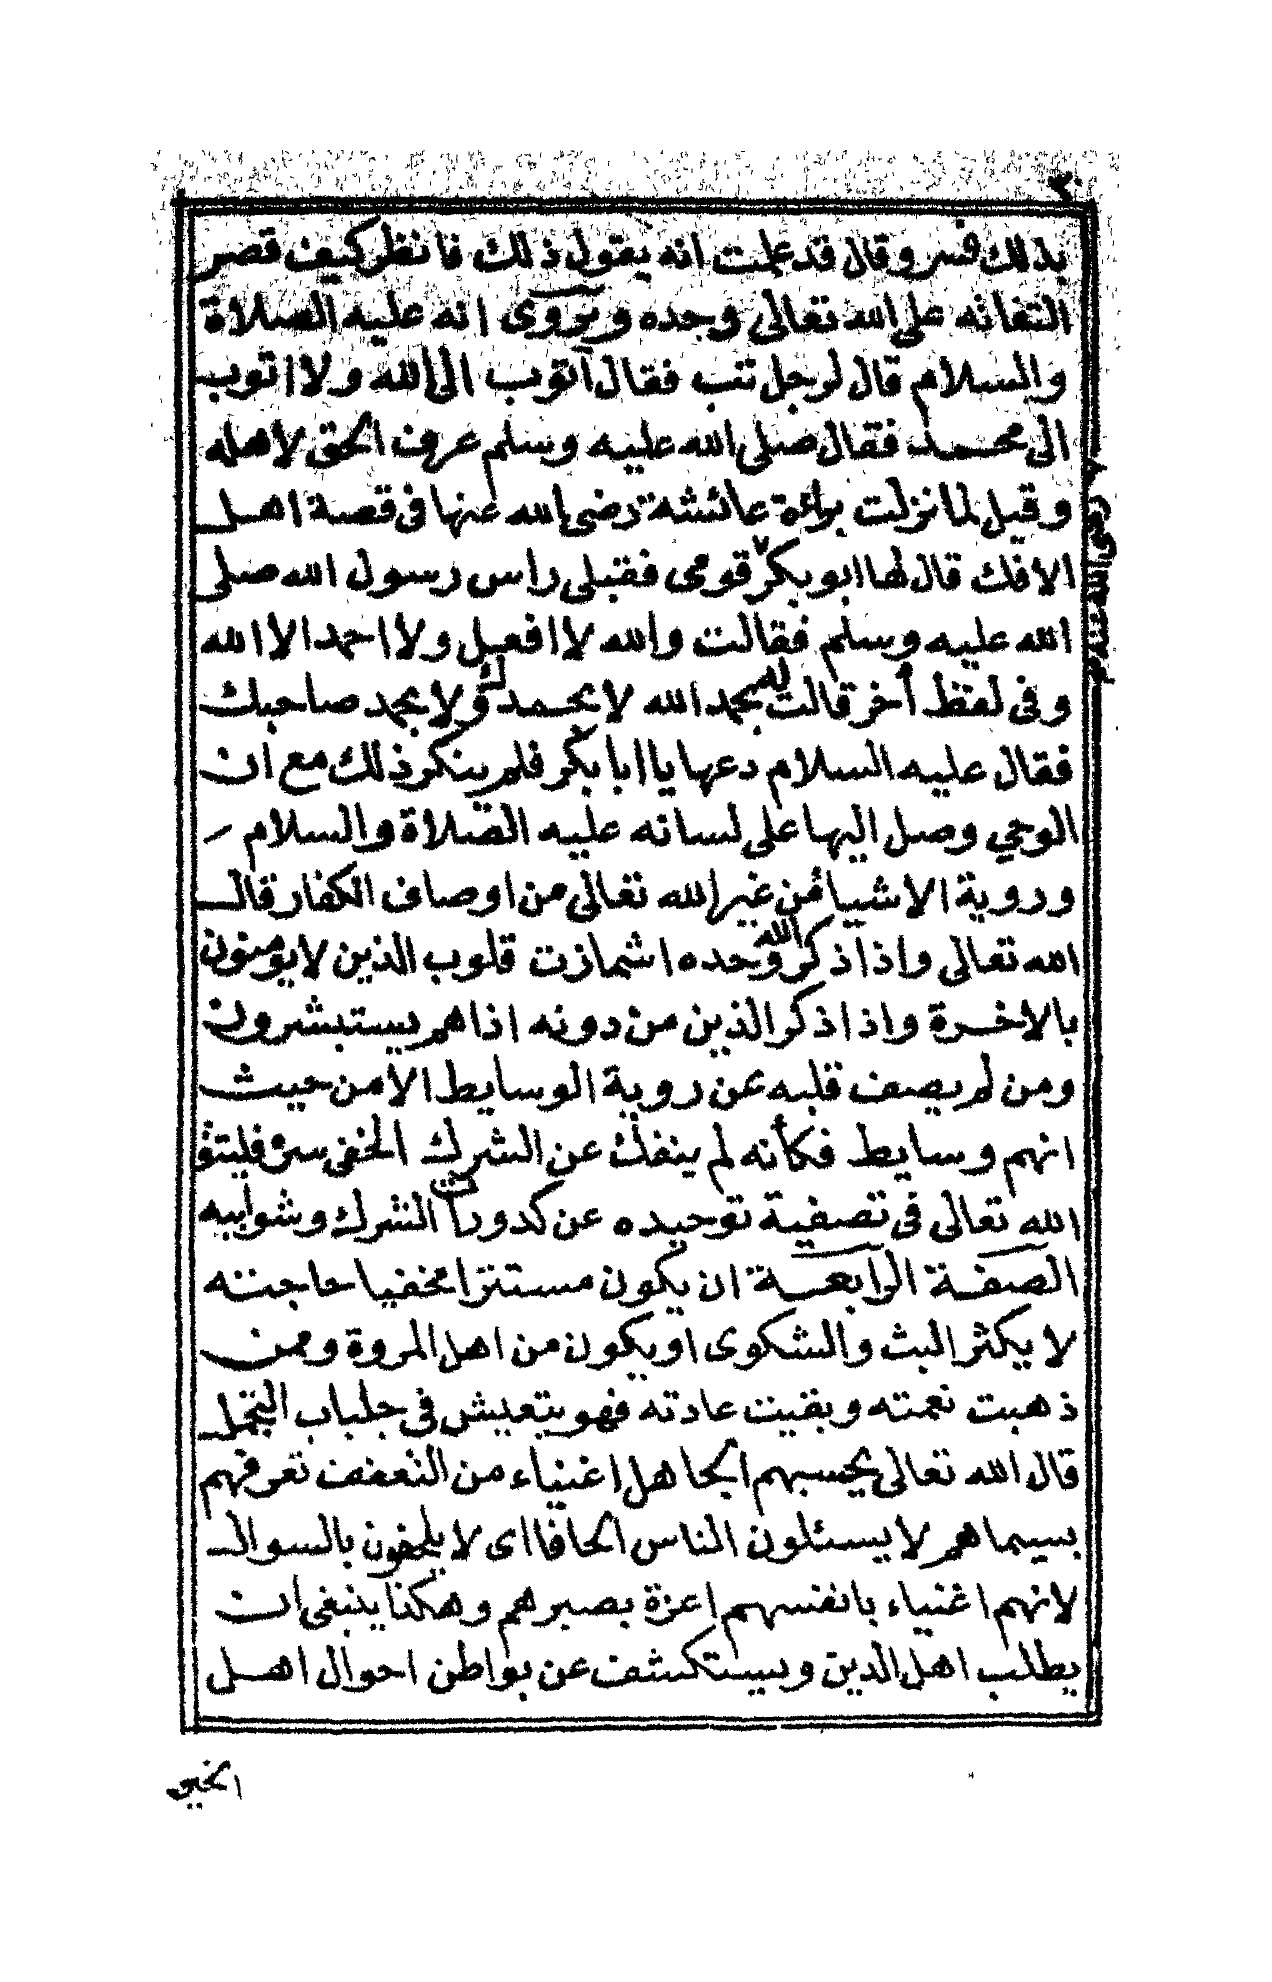 بذلك فسر وقال قد علمت انه يقول ذلك فانظر كيف قصر
التفاته على الله تعالى وحده ويروى انه عليه الصلاة
والسلام قال لرجل تب فقال اتوب الى الله ولا اتوب
الى محمد فقال صلى الله عليه وسلم عرف الحق لاهله
وقيل لما نزلت براءة عائشة رضى الله عنها فى قصة اهل
الافك قال لها ابو بكر قومى فقبلى راس رسول الله صلى
الله عليه وسلم فقالت والله لا افعل ولا احمد الا الله
وفى لفظ أخر قالت له بحمد الله لا بحمدك ولا بحمد صاحبك
فقال عليه السلام دعها يا ابا بكر فلم ينكر ذلك مع ان
الوحي وصل اليها على لسانه عليه الصلاة والسلام
وروية الاشيا من غير الله تعالى من اوصاف الكفار قال
الله تعالى واذا ذكر الله وحده اشمازت قلوب الذين لا يومنون
بالاخرة واذا ذكر الذين من دونه اذا هم يستبشرون
ومن لم يصف قلبه عن روية الوسايط الا من حيث
انهم وسايط فكأنه لم ينفك عن الشرك الخفى سره فليتق
الله تعالى فى تصفية توحيده عن كدورات الشرك وشوايبه
الصفة الرابعة ان يكون مستترا مخفيا حاجته
لا يكثر البث والشكوى او يكون من اهل المروة وممن
ذهبت نعمته وبقيت عادته فهو يتعيش فى جلباب التجمل
قال الله تعالى يحسبهم الجاهل اغنياء من التعفف تعرفهم
بسيماهم لا يسئلون الناس الحافا اى لا يلحفون بالسوال
لانهم اغنياء بانفسهم اعزة بصبرهم وهكذا ينبغى ان
يطلب اهل الدين ويستكشف عن بواطن احوال اهل